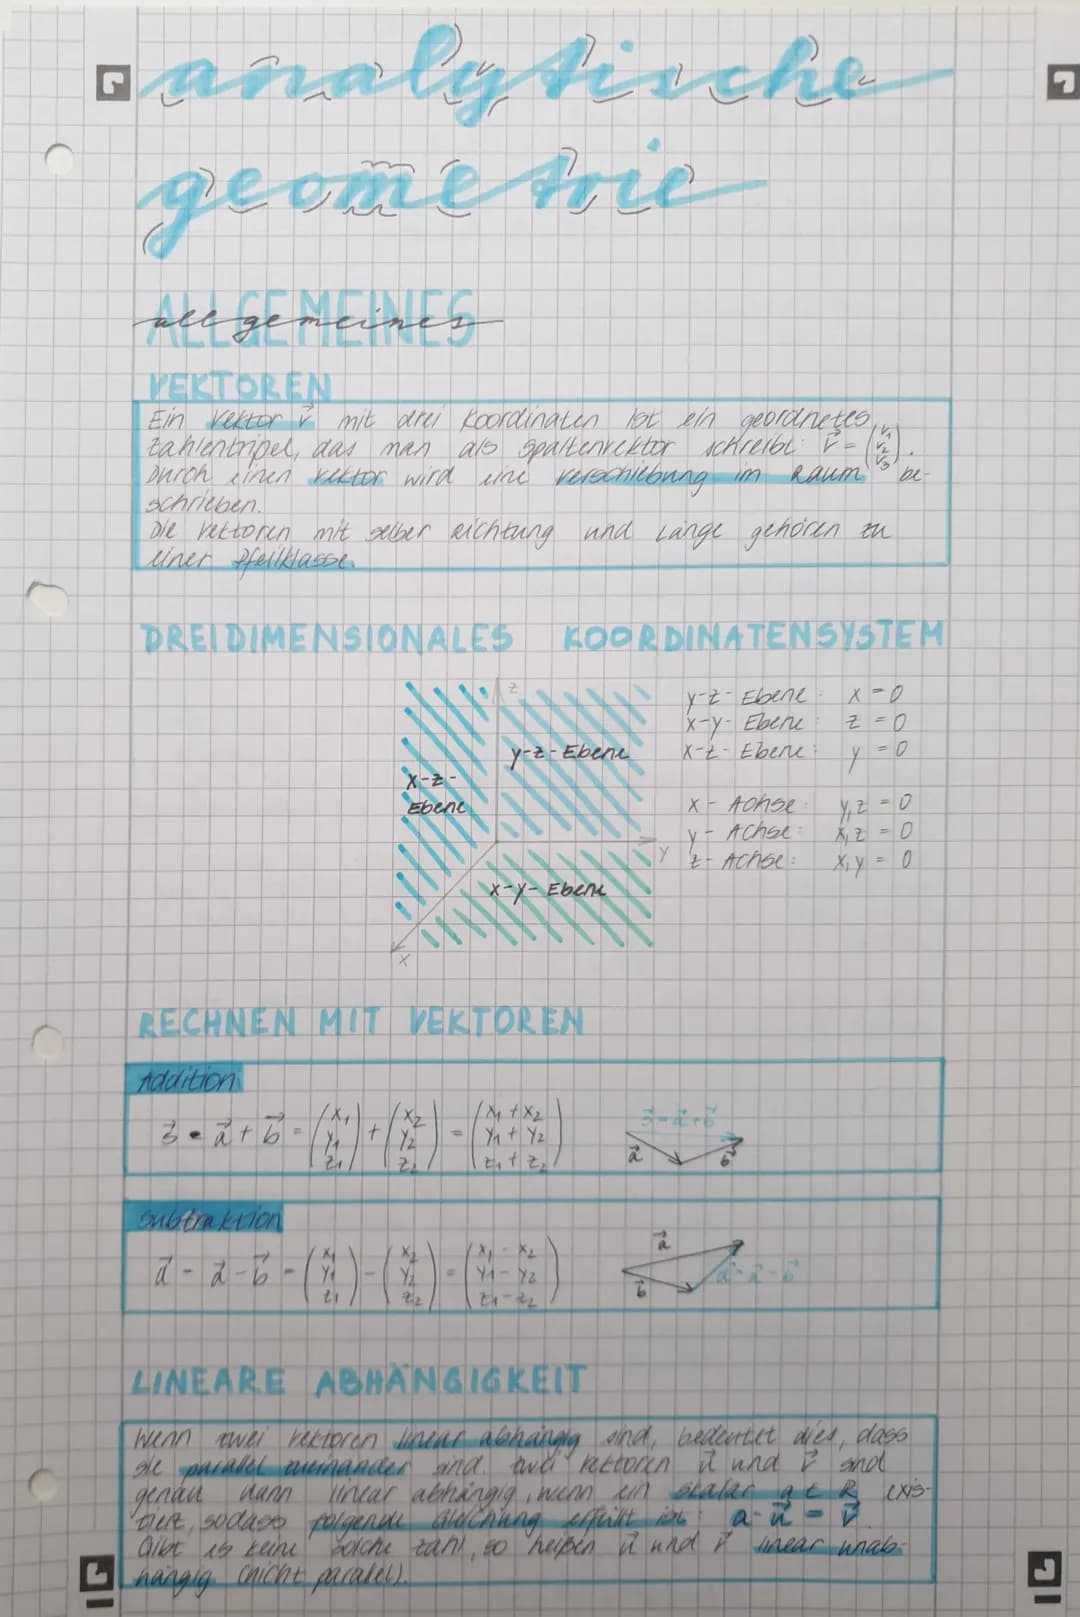 analytische
geometrie
ALLGEMEINES
allgemeines
VEKTOREN
Ein Vektor v⃗ mit drei Koordinaten ist ein geordnetes
Zahlentripel, das man als Spaltenvektor schreibt: v⃗ = (v₁ v₂ v₃).
Durch einen Vektor wird eine Verschiebung im Raum be-
schrieben.
Die Vektoren mit selber Richtung und Länge gehören zu
einer Pfeilklasse.
DREIDIMENSIONALES KOORDINATENSYSTEM
z
y-z-Ebene
x-z-
Ebene
y
x-y-Ebene
x
y-z-Ebene: x = 0
x-y-Ebene: z = 0
x-z-Ebene: y = 0
x-Achse: y,z = 0
y-Achse: x,z = 0
z-Achse: x,y = 0
RECHNEN MIT VEKTOREN
Addition:
s⃗ = a⃗ + b⃗ = (x₁ y₁ z₁) + (x₂ y₂ z₂) = (x₁+x₂ y₁+y₂ z₁+z₂)
s⃗ = a⃗+b⃗
a⃗ b⃗
Subtraktion
d⃗ = a⃗ - b⃗ = (x₁ y₁ z₁) - (x₂ y₂ z₂) = (x₁-x₂ y₁-y₂ z₁-z₂)
a⃗
d⃗=a⃗-b⃗
b⃗
LINEARE ABHÄNGIGKEIT
Wenn zwei Vektoren linear abhängig sind, bedeutet dies, dass
sie parallel zueinander sind. Zwei Vektoren u⃗ und v⃗ sind
genau dann linear abhängig, wenn ein Skalar a ∈ R exis-
tiert, sodass folgende Gleichung erfüllt ist: a · u⃗ = v⃗.
Gibt es keine solche Zahl, so heißen u⃗ und v⃗ linear unab-
hängig (nicht parallel).